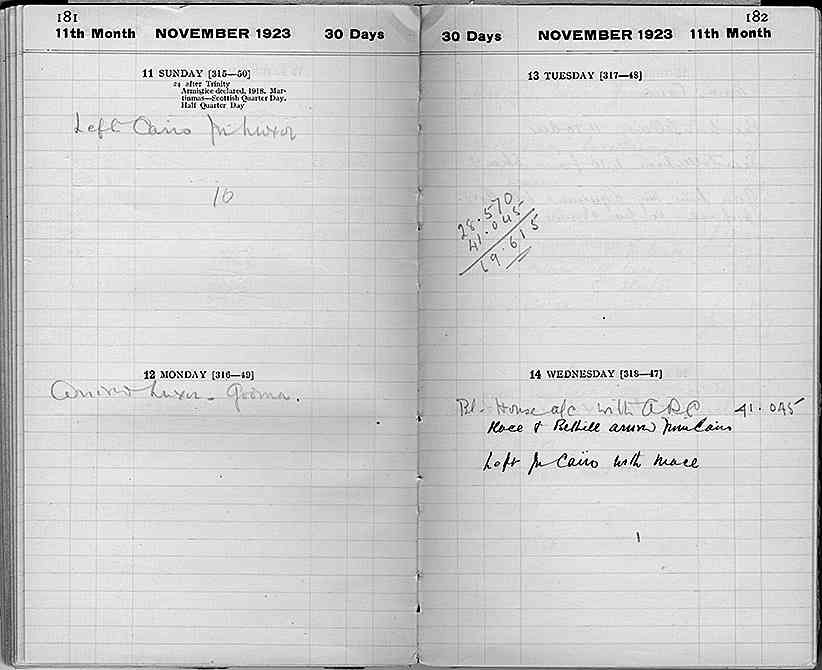 181
11th Month NOVEMBER 1923 30 Days
11 SUNDAY [315—50]
24 after Trinity
Armistice declared, 1918. Mar-
tinmas—Scottish Quarter Day.
Half Quarter Day
Left Cairo for Luxor
10
12 MONDAY [316—49]
Arrived Luxor - Goorna.
182
30 Days NOVEMBER 1923 11th Month
13 TUESDAY [317—48]
28.570
41.045
69.615
14 WEDNESDAY [318—47]
House a/c with 41.045
Mace & Bethell arrived from Cairo
Left for Cairo with Mace
1